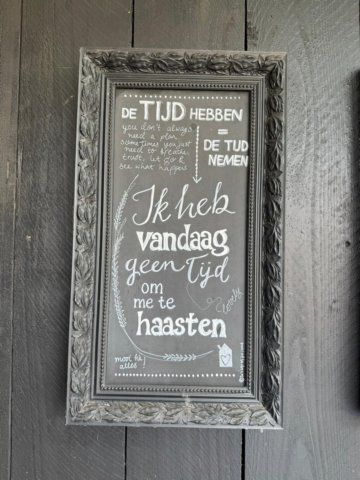 DE TIJD HEBBEN
=
DE TIJD
NEMEN
you don't always
need a plan
sometimes you just
need to breathe,
trust, let go &
see what happens
Ik heb
vandaag
geen tijd
om
me te
haasten
lovely
mooi hè
alles!